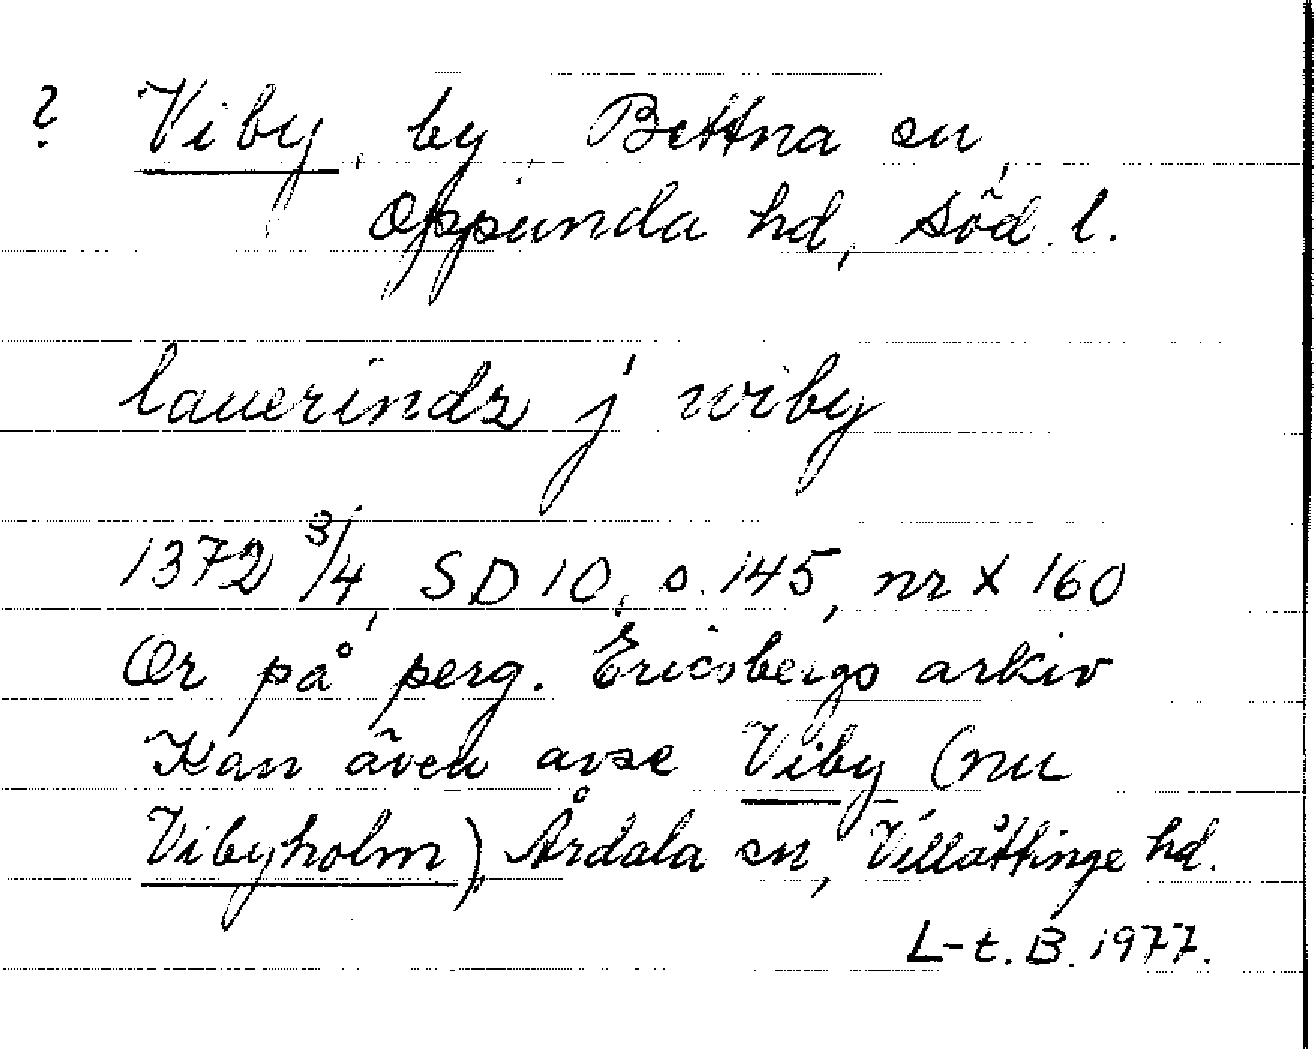 ? Viby, by, Bettna sn,
Oppunda hd, Söd. l.
lauerindz j wiby
1372 3/4, SD 10, s. 145, nr X 160
Or på perg. Ericsbergs arkiv
Kan även avse Viby (nu
Vibyholm), Årdala sn, Villåttinge hd.
L-t. B. 1977.